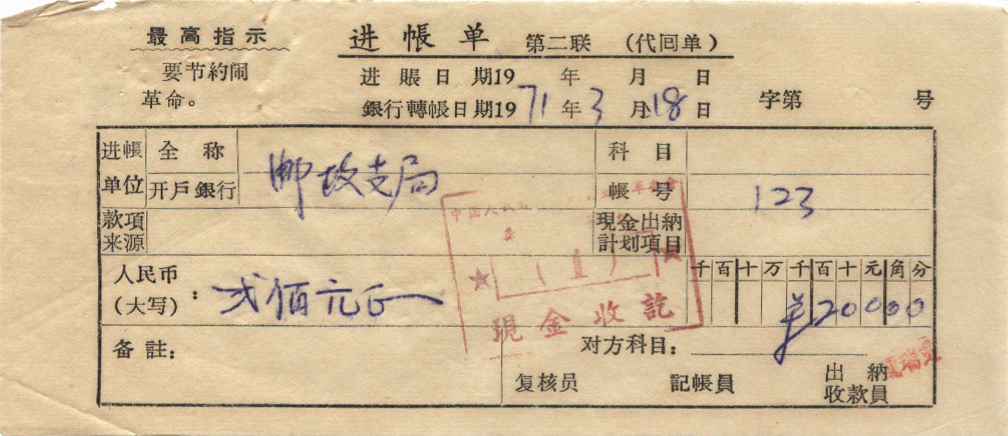 最高指示
要节約闹
革命。
进帳单 第二联 （代回单）
进賬日期19 年 月 日
銀行轉帳日期1971年3月18日
字第 号
进帳单位 全称 邮政支局 科目
开戶銀行 帳号 123
款項来源 現金出納計划項目
人民币(大写)： 弍佰元正
千百十万千百十元角分
¥20000
中国人民
(1)
現金收訖
备註： 对方科目：
复核员 記帳員 出納收款員